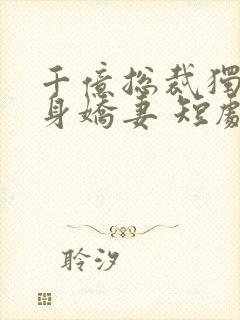 千億总裁獨
身嬌妻 短劇
聆汐